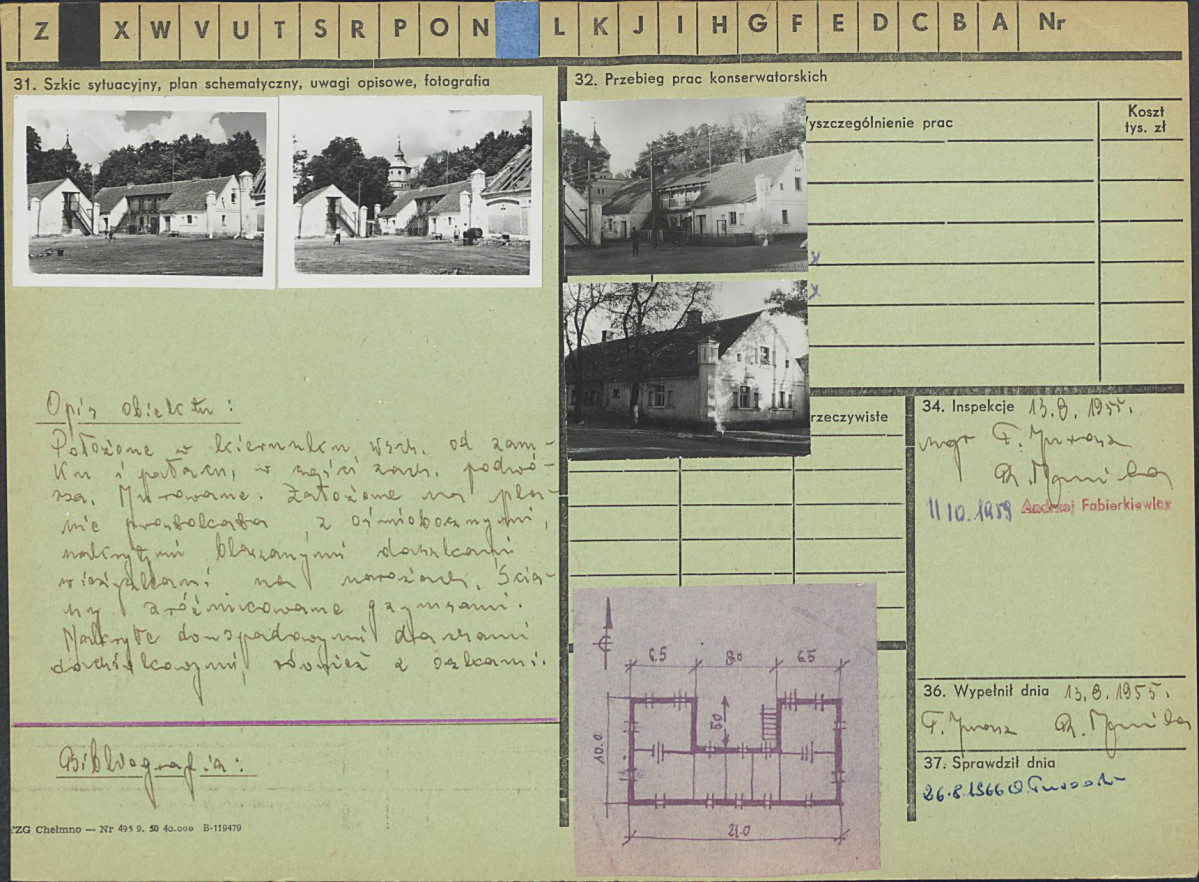 Z X W V U T S R P O N L K J I H G F E D C B A Nr
31. Szkic sytuacyjny, plan schematyczny, uwagi opisowe, fotografia
Opis obiektu:
Położone w kierunku wsch. od zam-
ku i pałacu, w części zach. podwó-
rza. Murowane. Założone na pla-
nie prostokąta z ośmiobocznymi,
nakrytymi blaszanymi daszkami
wieżyczkami na narożach. Ścia-
ny zróżnicowane gzymsami.
Nakryte dwuspadowymi dachami
dachówkowymi, również z oszkami.
Bibliografia:
ZG Chełmno — Nr 495 9. 50 40.000 B-119479
32. Przebieg prac konserwatorskich
yszczególnienie prac
Koszt
tys. zł
x
x
rzeczywiste
6.5 8.0 6.5
5.0
10.0
21.0
34. Inspekcje 13.8.1955.
mgr F.
11 10. 1959 Andrzej Fabierkiewicz
36. Wypełnił dnia 13.8.1955.
F.
37. Sprawdził dnia
26.8.1966